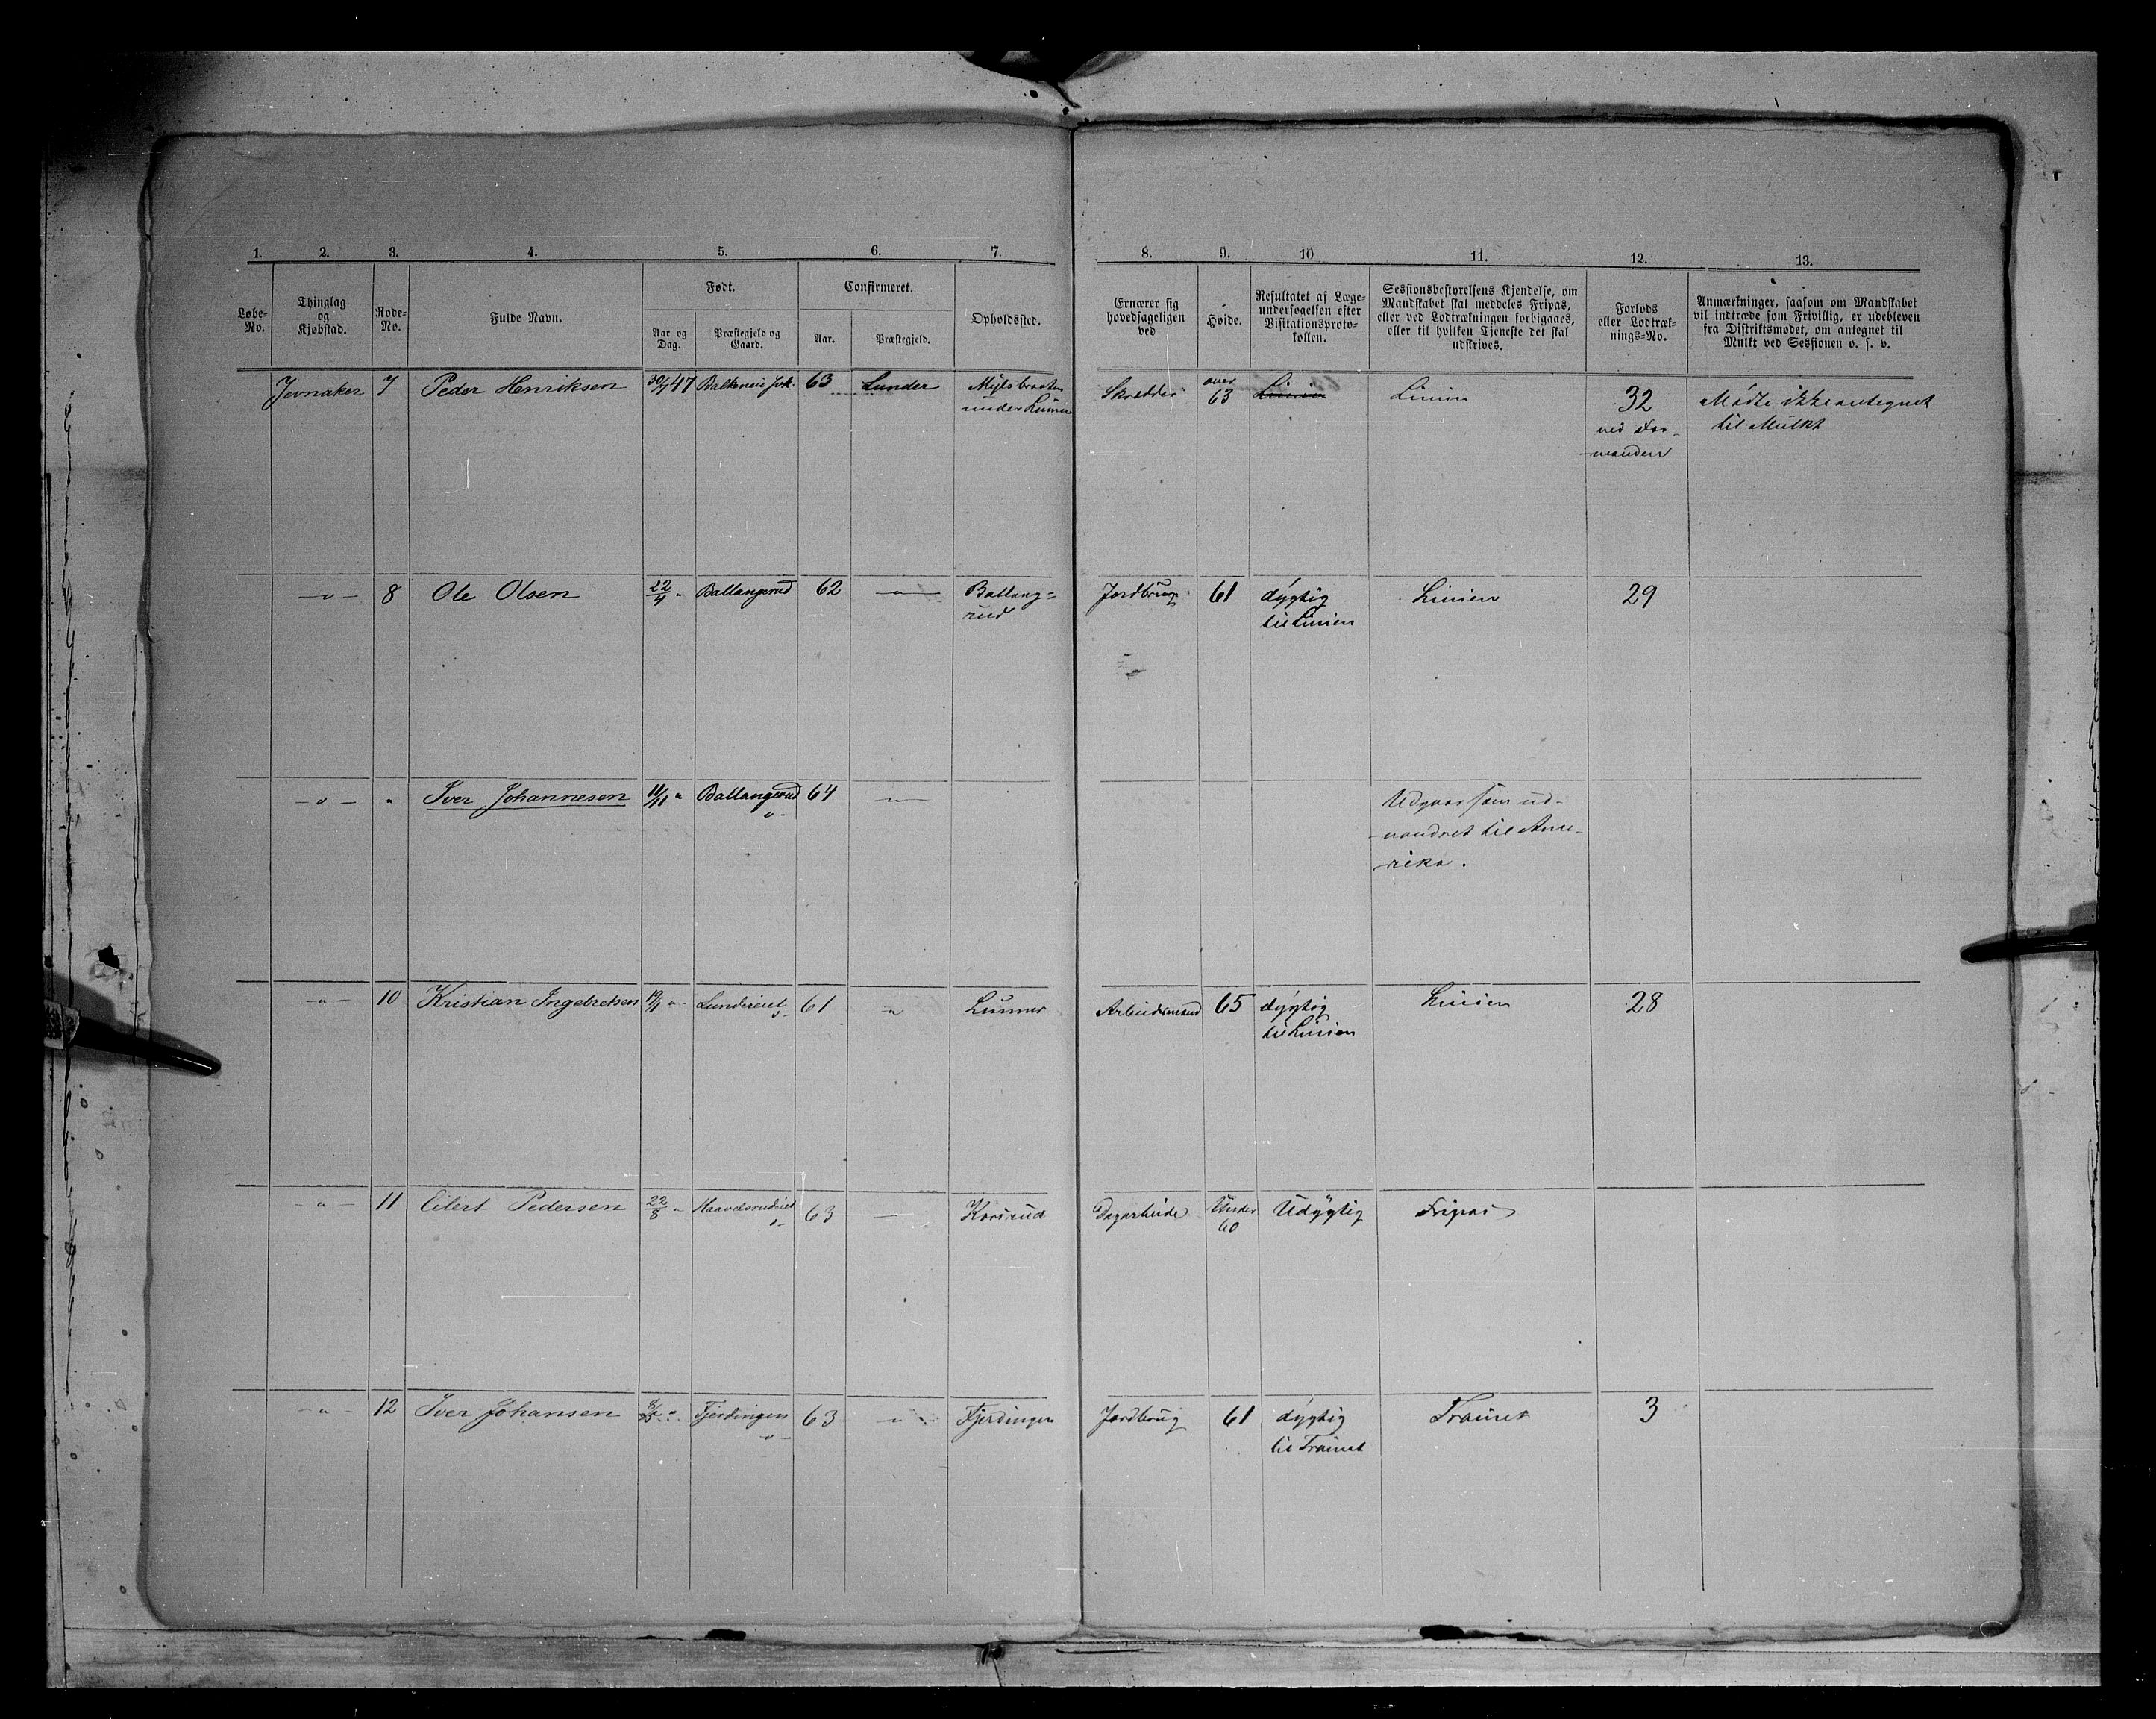 1. 2. 3. 4. 5. 6. 7. 8. 9. 10 11. 12. 13.
Løbe-No.
Thinglag og Kjøbstad.
Rode-No.
Fulde Navn.
Født.
Aar og Dag.
Præstegjeld og Gaard.
Confirmeret.
Aar.
Præstegjeld.
Opholdssted.
Ernærer sig hovedsageligen ved
Høide.
Resultatet af Læge-undersøgelsen efter Visitationsproto-kollen.
Sessionsbestyrelsens Kjendelse, om Mandskabet skal meddeles Fripas, eller ved Lodtrækningen forbigaaes, eller til hvilken Tjeneste det skal udskrives.
Forlods eller Lodtræk-nings-No.
Anmærkninger, saasom om Mandskabet vil indtræde som Frivillig, er udebleven fra Distriktsmødet, om antegnet til Mulkt ved Sessionen o. s. v.
Jevnaker 7 Peder Henriksen 47 63 Lunder
under
Skrædder over 63 Linien Linien 32 Mødte ikke antegnet
ved For-
manden
til Mulkt
-"- 8 Ole Olsen 22/4 " Ballangrud 62 -"- Ballang=
rud
Jordbrug 61 dygtig
til Linien
Linien 29
-"- " Iver Johannesen " Ballangerud 64 -"-
Udgaar som ud-
vandret til Ame-
rika.
-"- 10 Kristian Ingebretsen " Lundereiet 61 " Lunner
Arbeidsmand 65 dygtig
til Linien
Linien 28
-"- 11 Eilert Pedersen 22/8 " 63 — Korsrud
Dagarbeide Under
60
Udygtig Fripas
-"- 12 Iver Johansen Fjerdingen 63 " Fjerdingen
Jordbrug 61 dygtig
til Trainet
Trainet 3